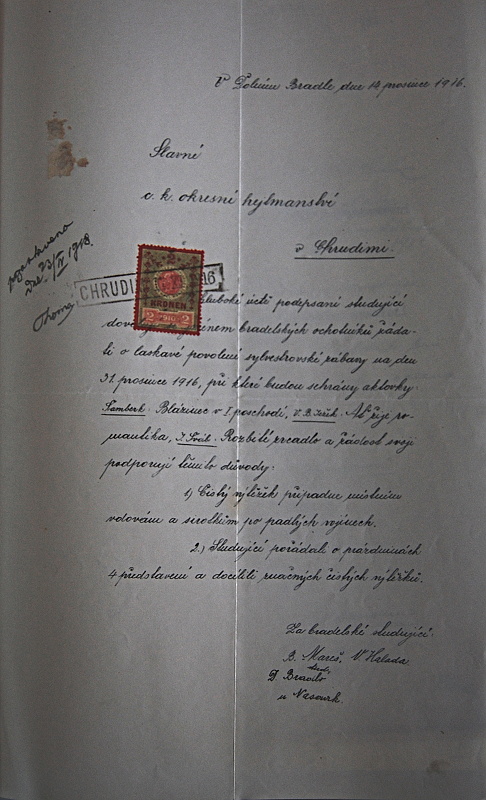 V Dolním Bradle dne 14 prosince 1916.
Slavné
c. k. okresní hejtmanství
v Chrudimi.
Dne 23/IV 1918
CHRUDI 16
KRONEN
2 1910 2
hluboké úctě podepsaní studující
jménem bradelských ochotníků žáda-
jí o laskavé povolení sylvestrovské zábavy na den
31. prosince 1916, při které budou sehrány aktovky:
Šamberk. Blázinec v I poschodí, V. B. Ať žije ro-
mantika, J. Šváb. Rozbité zrcadlo a žádost svoji
podporují těmito důvody:
1) Čistý výtěžek připadne místním
vdovám a sirotkům po padlých vojínech.
2.) Studující pořádali o prázdninách
4 představení a docílili značných čistých výtěžků.
Za bradelské studující:
B. Mareš, V. Halada
stud.
D. Bradlo
u Nasavrk.